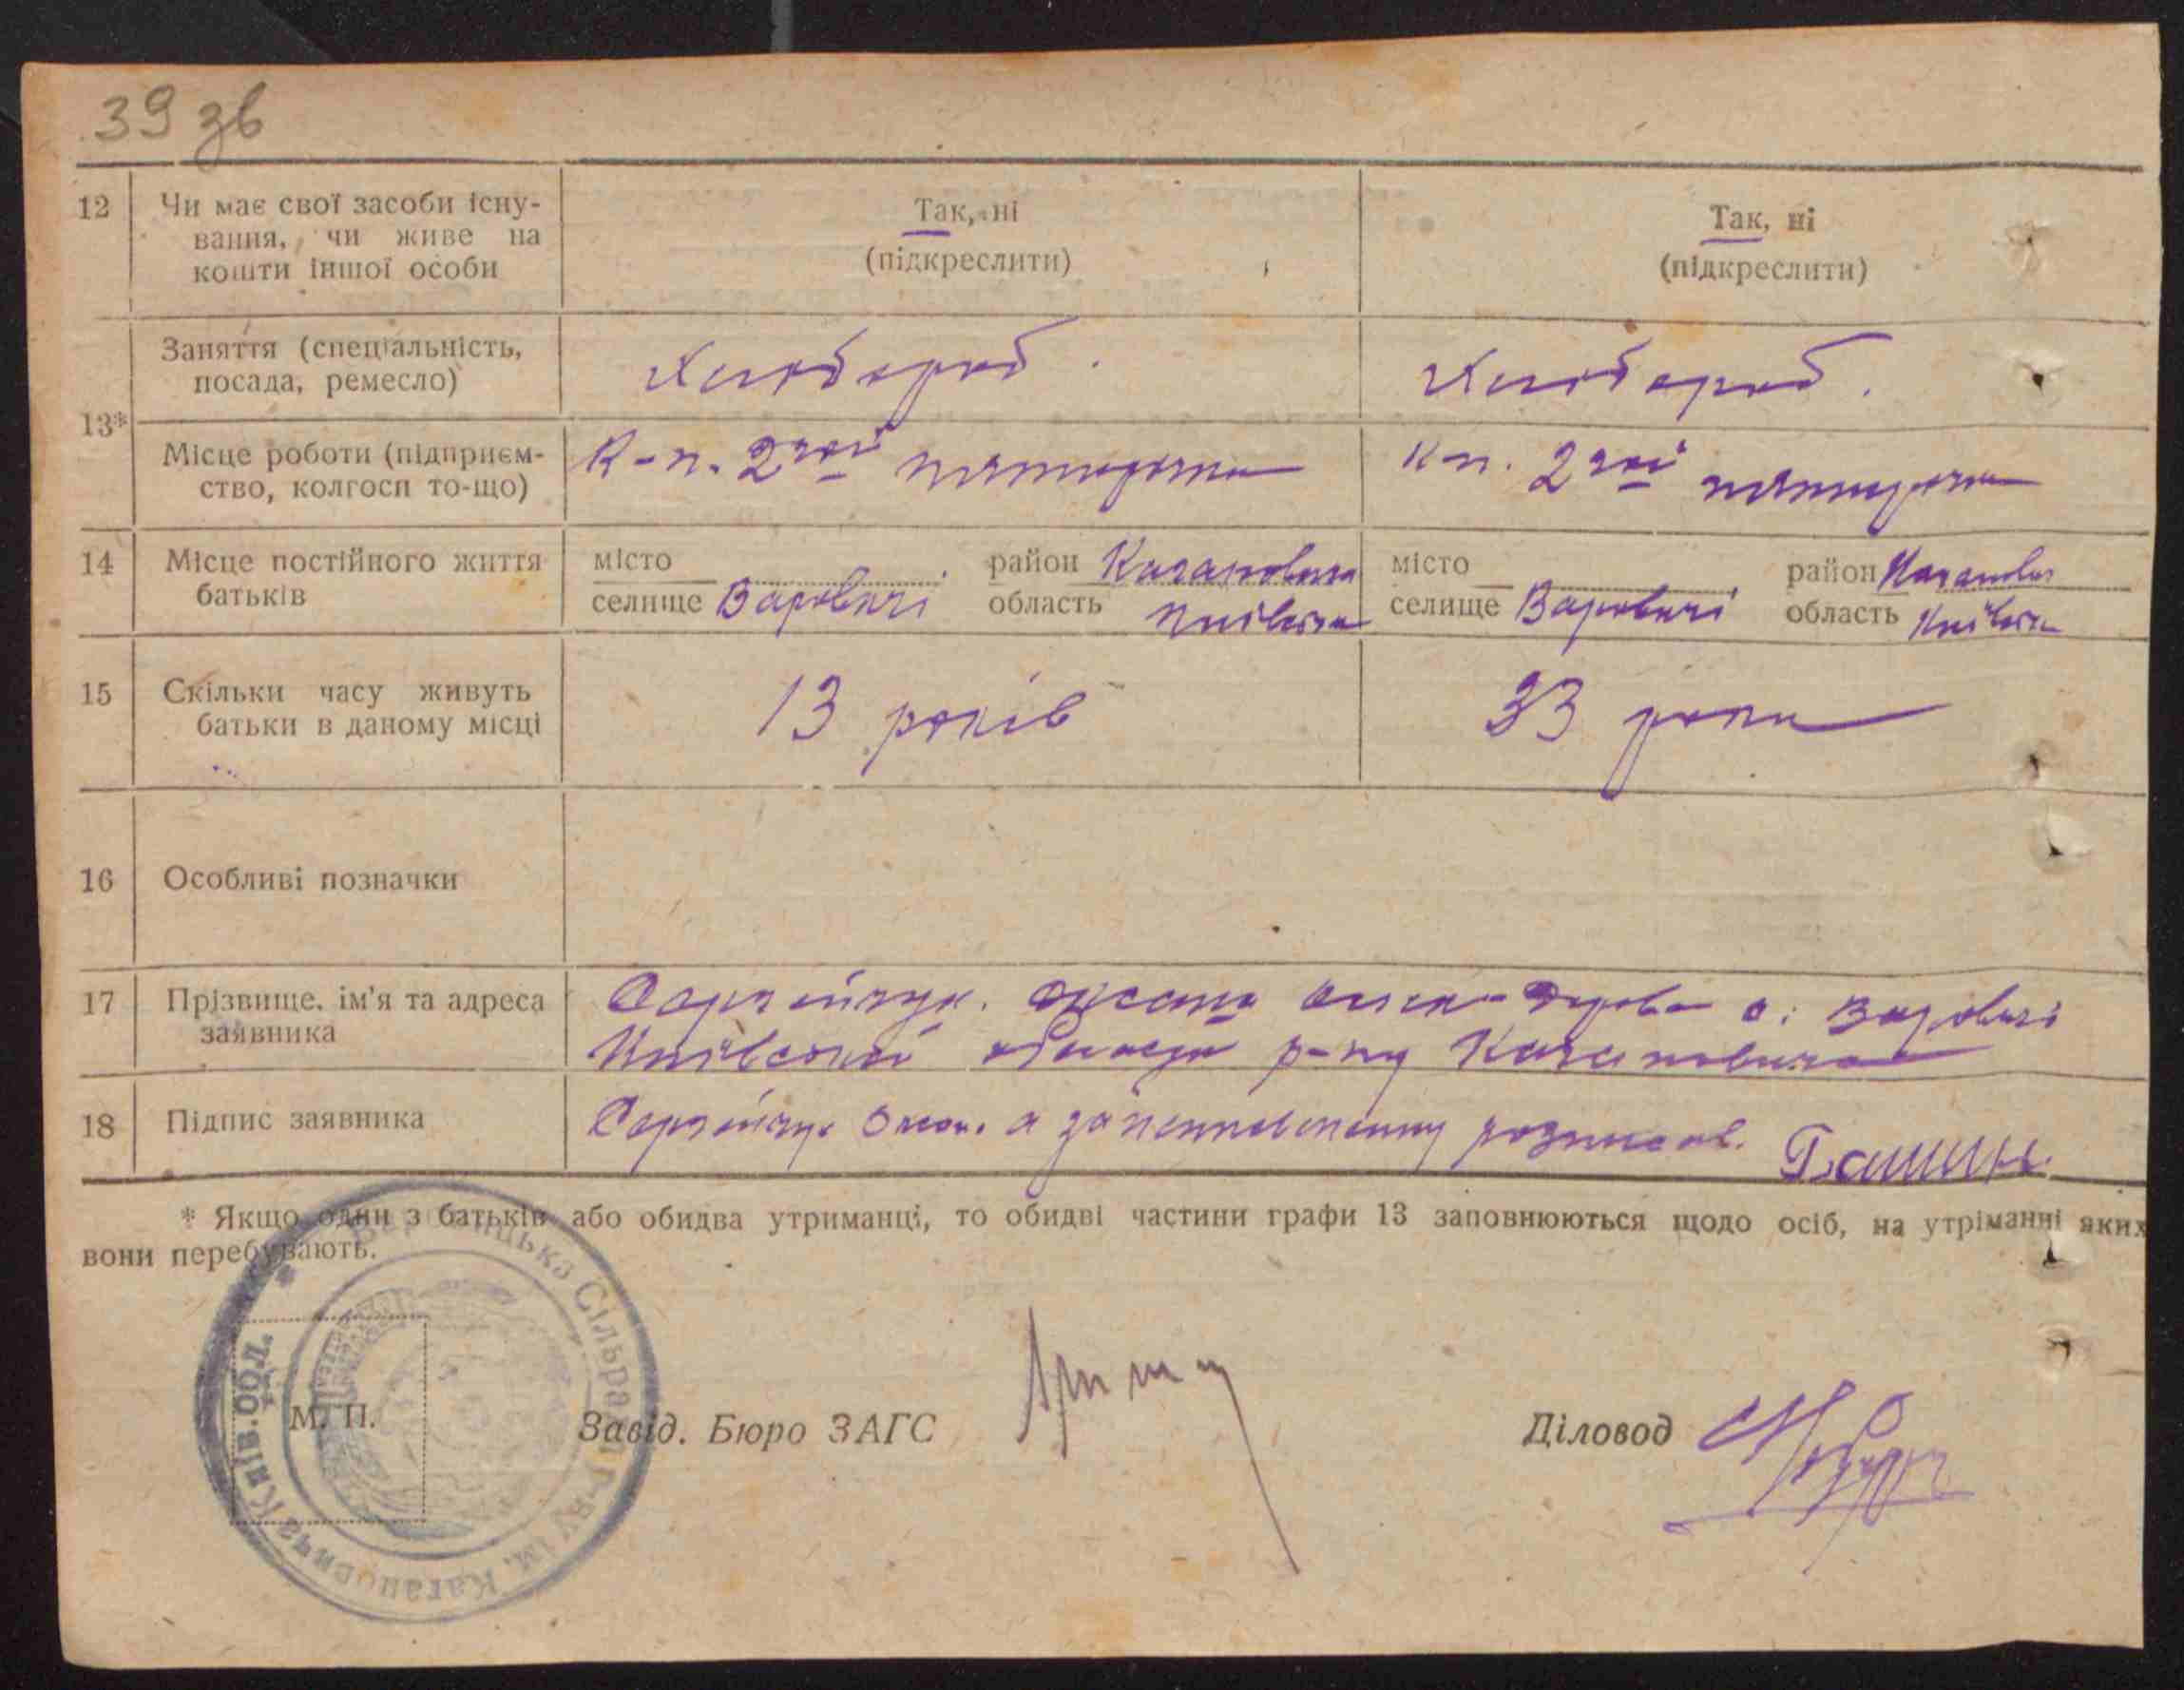 39 зв
12 Чи має свої засоби існу-
вання, чи живе на
кошти іншої особи
Так, ні
(підкреслити)
Так, ні
(підкреслити)
13*
Заняття (спеціальність,
посада, ремесло)
Хлібороб.
Хлібороб.
Місце роботи (підприєм-
ство, колгосп то-що)
К-п. 2гої пятирічки
К-п. 2гої пятирічки
14 Місце постійного життя
батьків
місто
селище Варовичі
район Кагановича
область Київська
місто
селище Варовичі
район Каганович
область Київська
15 Скільки часу живуть
батьки в даному місці
13 років
33 роки
16 Особливі позначки
17 Прізвище, ім'я та адреса
заявника
Оксана с. Варовичі
Київської області р-ну Кагановича
18 Підпис заявника
а за неписьменну розписав.
* Якщо один з батьків або обидва утриманці, то обидві частини графи 13 заповнюються щодо осіб, на утріманні яких
вони перебувають.
М. П.
Завід. Бюро ЗАГС
Діловод
Варовицька Сільрада Р-ну ім. Кагановича Київ. Обл.